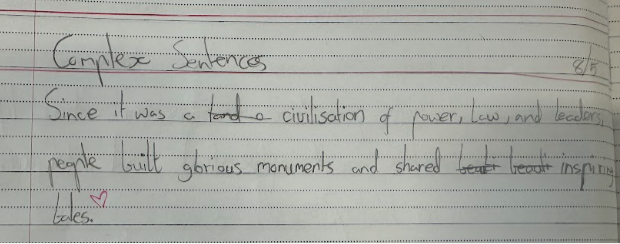 Complex Sentences
8/5
Since it was a civilisation of power, law, and leaders,
people built glorious monuments and shared inspiring
tales.